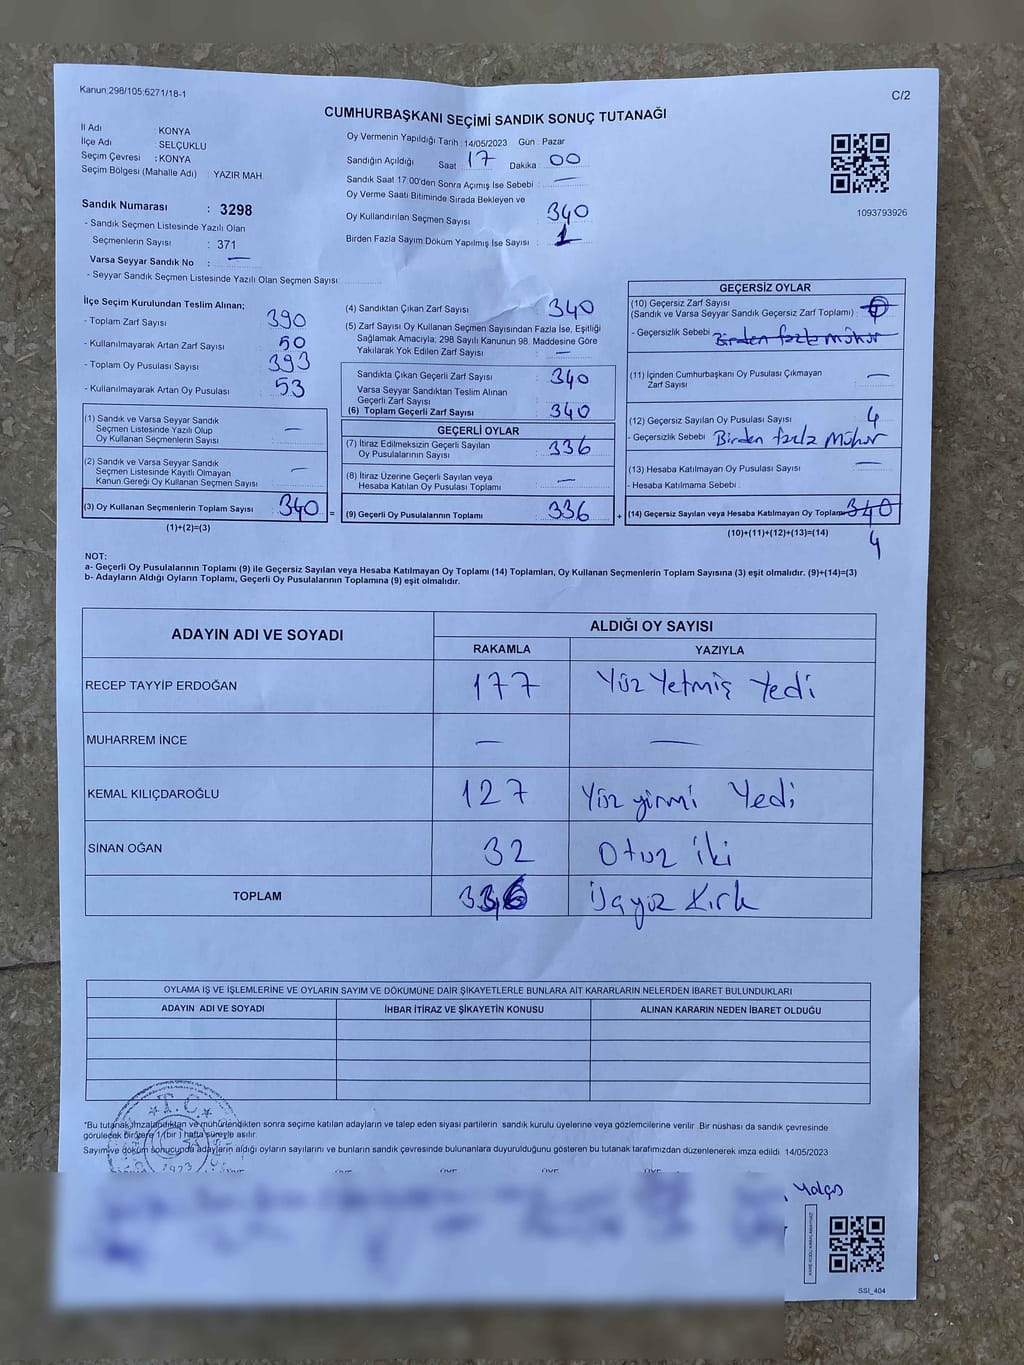 Kanun:298/105;6271/18-1
C/2
CUMHURBAŞKANI SEÇİMİ SANDIK SONUÇ TUTANAĞI
İl Adı : KONYA
İlçe Adı : SELÇUKLU
Seçim Çevresi : KONYA
Seçim Bölgesi (Mahalle Adı) : YAZIR MAH.
Sandık Numarası : 3298
- Sandık Seçmen Listesinde Yazılı Olan
Seçmenlerin Sayısı : 371
Varsa Seyyar Sandık No : —
- Seyyar Sandık Seçmen Listesinde Yazılı Olan Seçmen Sayısı:
Oy Vermenin Yapıldığı Tarih : 14/05/2023 Gün : Pazar
Sandığın Açıldığı Saat : 17 Dakika : 00
Sandık Saat 17:00'den Sonra Açımış İse Sebebi : —
Oy Verme Saati Bitiminde Sırada Bekleyen ve
Oy Kullandırılan Seçmen Sayısı : 340
Birden Fazla Sayım Döküm Yapılmış İse Sayısı : 1
1093793926
İlçe Seçim Kurulundan Teslim Alınan;
- Toplam Zarf Sayısı : 390
- Kullanılmayarak Artan Zarf Sayısı : 50
- Toplam Oy Pusulası Sayısı : 393
- Kullanılmayarak Artan Oy Pusulası : 53
(1) Sandık ve Varsa Seyyar Sandık
Seçmen Listesinde Yazılı Olup
Oy Kullanan Seçmenlerin Sayısı : —
(2) Sandık ve Varsa Seyyar Sandık
Seçmen Listesinde Kayıtlı Olmayan
Kanun Gereği Oy Kullanan Seçmen Sayısı : —
(3) Oy Kullanan Seçmenlerin Toplam Sayısı : 340 =
(1)+(2)=(3)
(4) Sandıktan Çıkan Zarf Sayısı : 340
(5) Zarf Sayısı Oy Kullanan Seçmen Sayısından Fazla İse, Eşitliği
Sağlamak Amacıyla; 298 Sayılı Kanunun 98. Maddesine Göre
Yakılarak Yok Edilen Zarf Sayısı : —
Sandıkta Çıkan Geçerli Zarf Sayısı : 340
Varsa Seyyar Sandıktan Teslim Alınan
Geçerli Zarf Sayısı :
(6) Toplam Geçerli Zarf Sayısı : 340
GEÇERLİ OYLAR
(7) İtiraz Edilmeksizin Geçerli Sayılan
Oy Pusulalarının Sayısı : 336
(8) İtiraz Üzerine Geçerli Sayılan veya
Hesaba Katılan Oy Pusulası Toplamı : —
(9) Geçerli Oy Pusulalarının Toplamı : 336 +
GEÇERSİZ OYLAR
(10) Geçersiz Zarf Sayısı
(Sandık ve Varsa Seyyar Sandık Geçersiz Zarf Toplamı) :
- Geçersizlik Sebebi : Birden fazla Mühür
(11) İçinden Cumhurbaşkanı Oy Pusulası Çıkmayan
Zarf Sayısı : —
(12) Geçersiz Sayılan Oy Pusulası Sayısı : 4
- Geçersizlik Sebebi : Birden fazla Mühür
(13) Hesaba Katılmayan Oy Pusulası Sayısı : —
- Hesaba Katılmama Sebebi :
(14) Geçersiz Sayılan veya Hesaba Katılmayan Oy Toplamı 340
(10)+(11)+(12)+(13)=(14) 4
NOT:
a- Geçerli Oy Pusulalarının Toplamı (9) ile Geçersiz Sayılan veya Hesaba Katılmayan Oy Toplamı (14) Toplamları, Oy Kullanan Seçmenlerin Toplam Sayısına (3) eşit olmalıdır. (9)+(14)=(3)
b- Adayların Aldığı Oyların Toplamı, Geçerli Oy Pusulalarının Toplamına (9) eşit olmalıdır.
ADAYIN ADI VE SOYADI
ALDIĞI OY SAYISI
RAKAMLA YAZIYLA
RECEP TAYYİP ERDOĞAN 177 Yüz Yetmiş Yedi
MUHARREM İNCE — —
KEMAL KILIÇDAROĞLU 127 Yüz yirmi Yedi
SİNAN OĞAN 32 Otuz iki
TOPLAM 336 Üçyüz Kırk
OYLAMA İŞ VE İŞLEMLERİNE VE OYLARIN SAYIM VE DÖKÜMÜNE DAİR ŞİKAYETLERLE BUNLARA AİT KARARLARIN NELERDEN İBARET BULUNDUKLARI
ADAYIN ADI VE SOYADI İHBAR İTİRAZ VE ŞİKAYETİN KONUSU ALINAN KARARIN NEDEN İBARET OLDUĞU
T.C.
1923
*Bu tutanak imzalandıktan ve mühürlendikten sonra seçime katılan adayların ve talep eden siyasi partilerin sandık kurulu üyelerine veya gözlemcilerine verilir. Bir nüshası da sandık çevresinde
görülecek bir yere 1 (bir) hafta süreyle asılır.
Sayım ve döküm sonucunda adayların aldığı oyların sayılarını ve bunların sandık çevresinde bulunanlara duyurulduğunu gösteren bu tutanak tarafımızdan düzenlenerek imza edildi. 14/05/2023
SSI_404